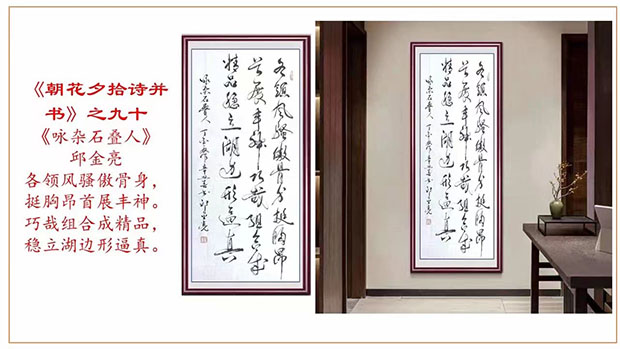 《朝花夕拾诗并
书》之九十
《咏杂石叠人》
邱金亮
各领风骚傲骨身，
挺胸昂首展丰神。
巧哉组合成精品，
稳立湖边形逼真。
各领风骚傲骨身挺胸昂
首展丰神巧哉组合成
精品稳立湖边形逼真
咏杂石叠人
各领风骚傲骨身挺胸昂
首展丰神巧哉组合成
精品稳立湖边形逼真
咏杂石叠人